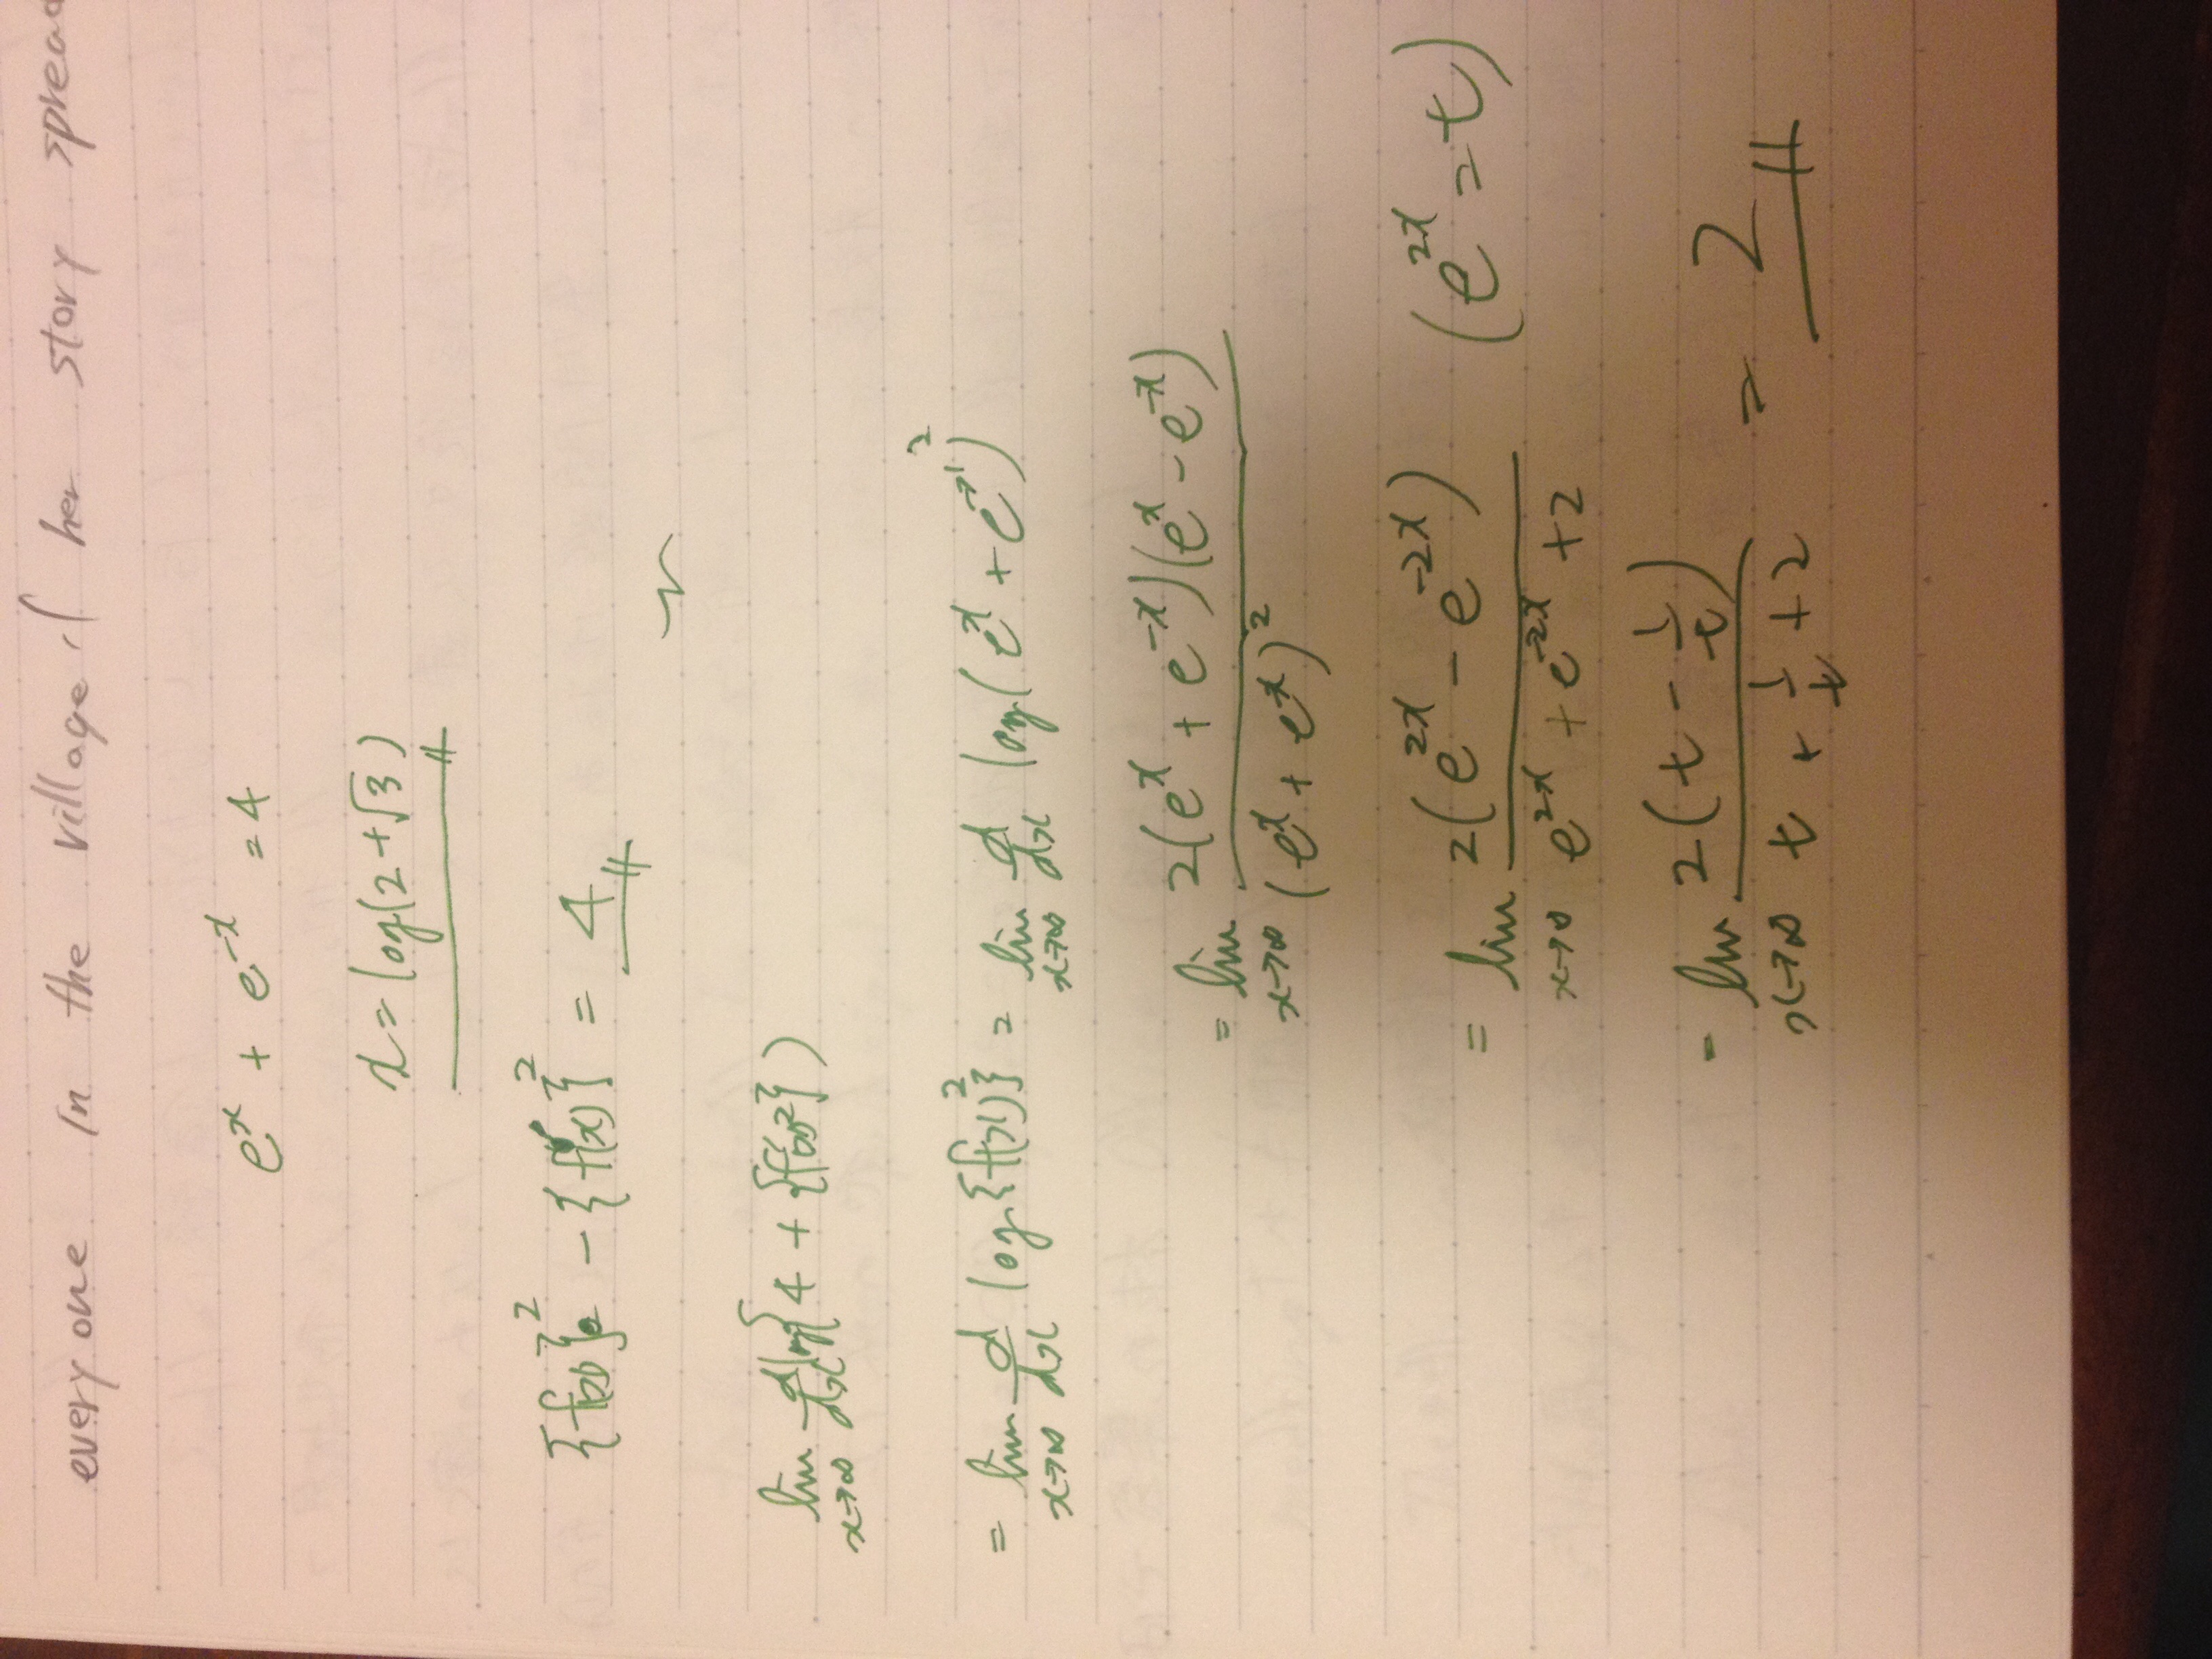 every one in the village. ( her story spread
e^x + e^-x = 4
x = log(2+√3)
{f(x)}^2 - {f'(x)}^2 = 4
lim x→∞ d/dx log(4 + {f'(x)}^2)
= lim x→∞ d/dx log{f(x)}^2 = lim x→∞ d/dx log(e^x + e^-x)^2
= lim x→∞ 2(e^x + e^-x)(e^x - e^-x) / (e^x + e^-x)^2
= lim x→∞ 2(e^2x - e^-2x) / e^2x + e^-2x + 2 (e^2x = t)
= lim x→∞ 2(t - 1/t) / t + 1/t + 2 = 2